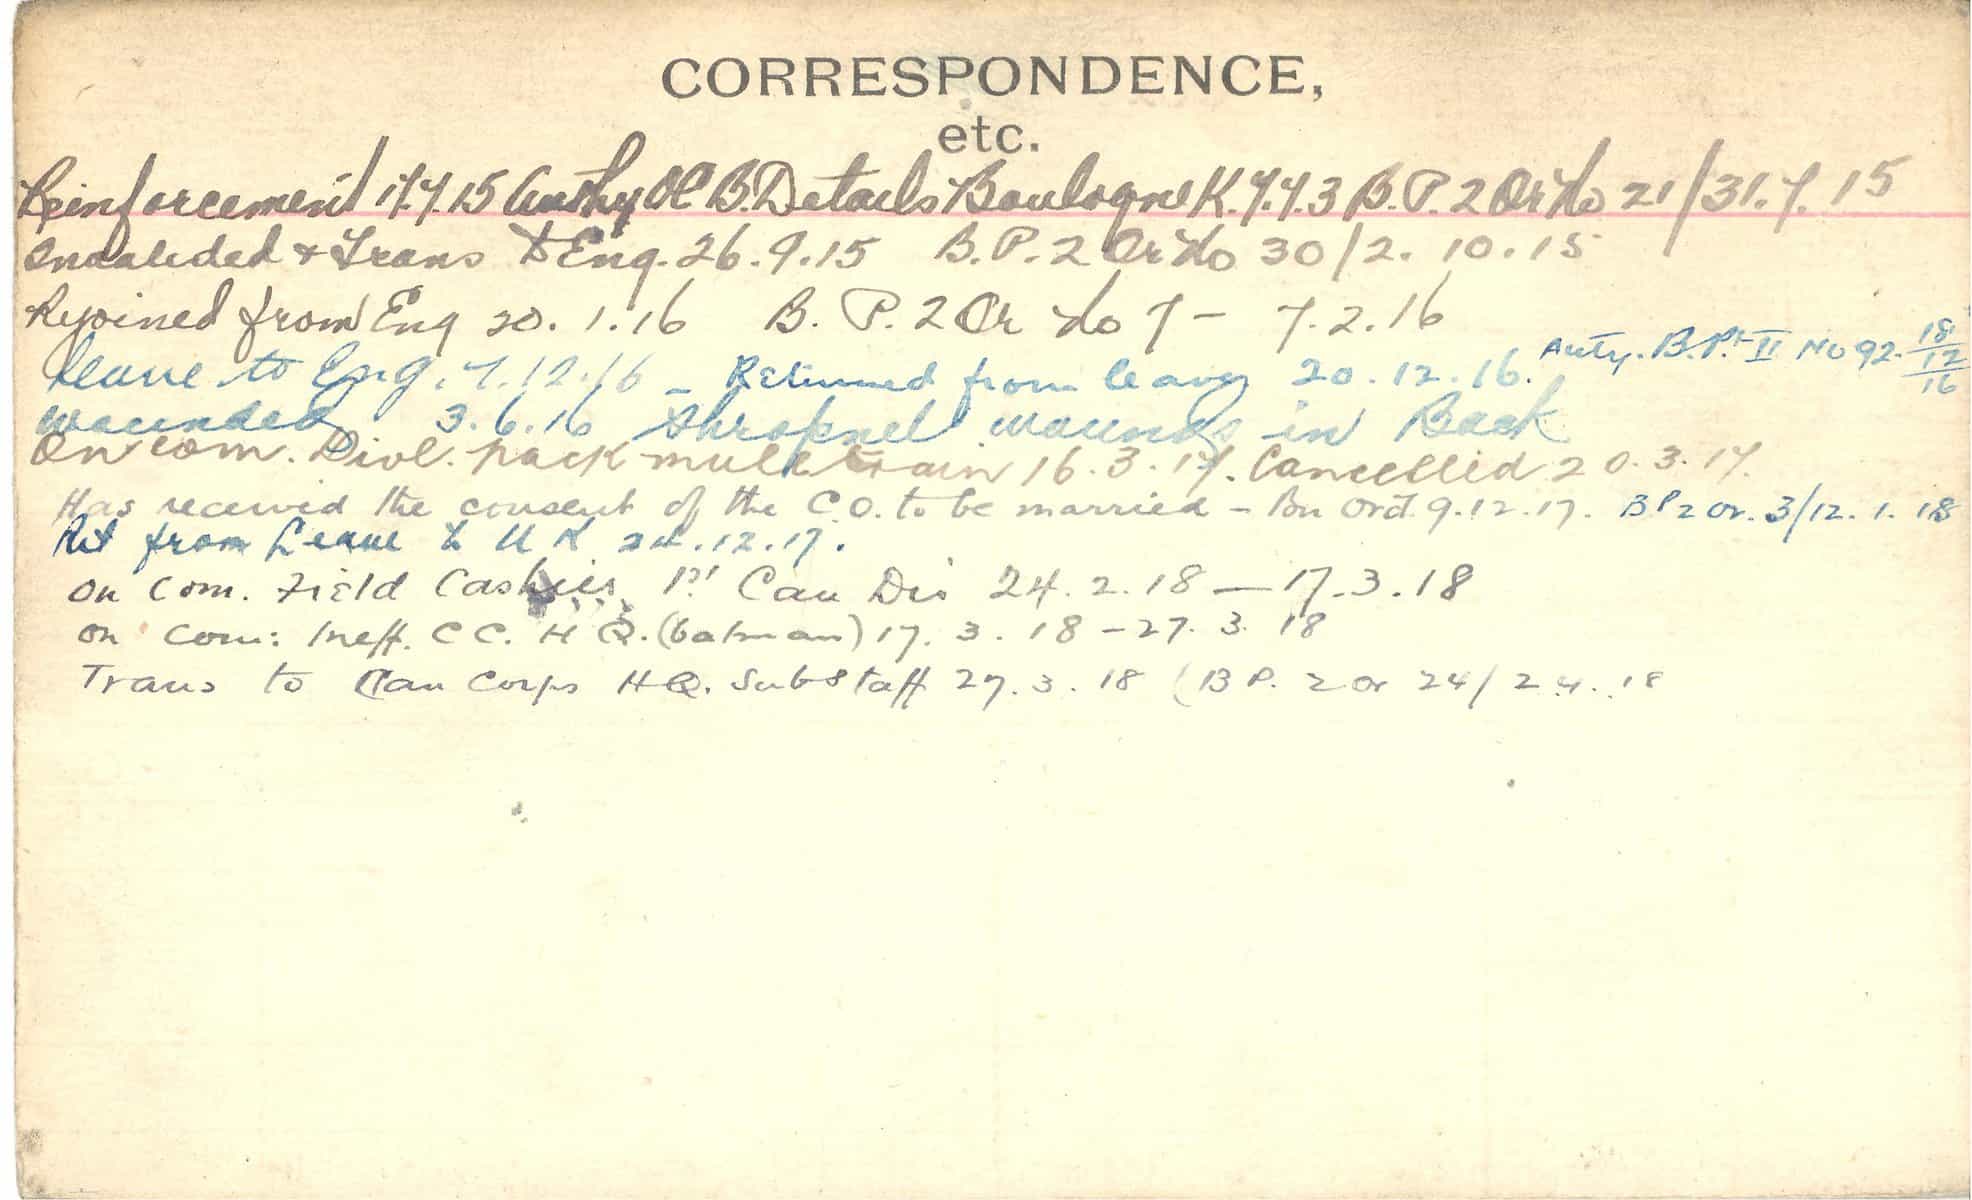 CORRESPONDENCE,
etc.
Reinforcement 17.7.15 Authy OC B. Details Boulogne K.7.7.3 B.P.2 Or No 21/31.7.15
Invalided & Trans to Eng. 26.9.15 B.P.2 Or No 30/2.10.15
Rejoined from Eng 20.1.16 B.P.2 Or No 7 - 7.2.16
Leave to Eng. 7.12.16 - Returned from leave 20.12.16. Auty. B. Pt II No 92. 18/12/16
Wounded 3.6.16 Shrapnel wounds in Back
On com. Divl. pack mule train 16.3.17. Cancelled 20.3.17.
Has received the consent of the C.O. to be married - Bn Ord. 9.12.17. BP2 Or. 3/12.1.18
Ret from Leave to U K 24.12.17.
On Com. Field Cashier 1st Can Div 24.2.18 — 17.3.18
On Com: Ineff. CC. HQ. (batman) 17.3.18 - 27.3.18
Trans to Can Corps HQ. Substaff 27.3.18 (BP. 2 or 24/2.4.18